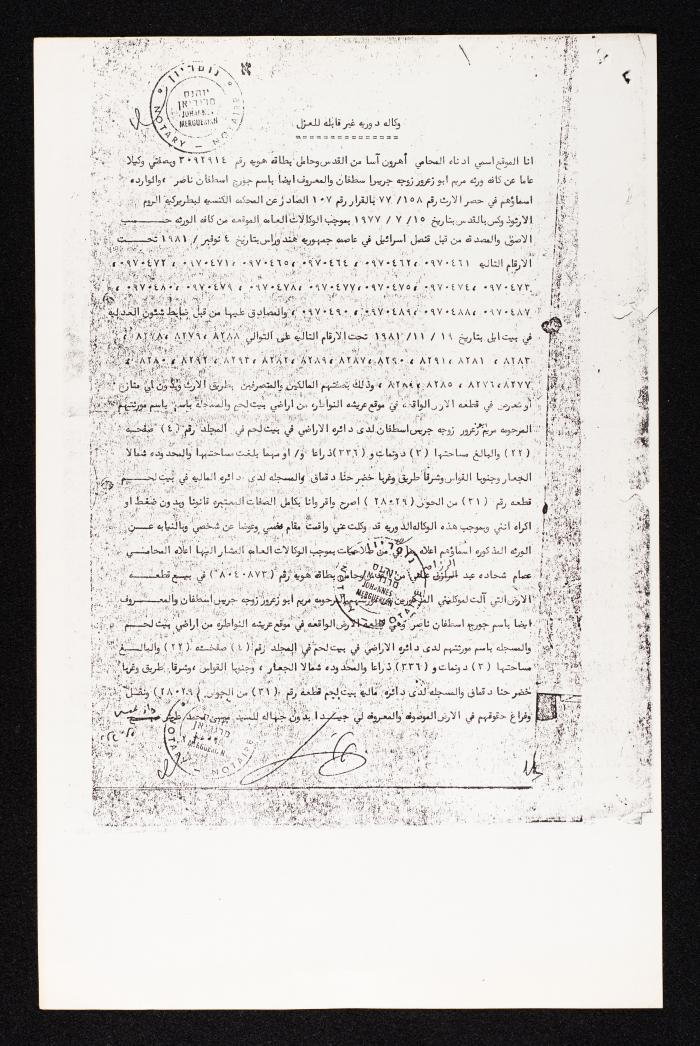 נוטריון
יוהנס
מרגריאן
JOHANNES
MERGUERIAN
NOTARY – NOTAIRE
وكاله دوريه غير قابله للعزل
انا الموقع اسمي ادناه المحامي أهرون آسا من القدس وحامل بطاقه هويه رقم ٣٠٩٢٩١٤ وبصفتي وكيلا
عاما عن كافه ورثه مريم ابو زعرور زوجه جريس اسطفان والمعروف ايضا باسم جورج اسطفان ناصر ،والوارده
اسماؤهم في حصر الارث رقم ٧٧/١٥٨ بالقرار رقم ١٠٧ الصادر عن المحكمه الكنسيه لبطريركيه الروم
الارثوذوكس بالقدس بتاريخ ١٥ / ٧ / ١٩٧٧ بموجب الوكالات العامه الموقعه من كافه الورثه حسب
الاصول والمصدقه من قبل قنصل اسرائيل في عاصمه جمهوريه هندوراس بتاريخ ٤ نوفبر / ١٩٨١ تحت
الارقام التاليه ٠٩٧٠٤٦١ ، ٠٩٧٠٤٦٢ ، ٠٩٧٠٤٦٤ ، ٠٩٧٠٤٦٥ ، ٠٩٧٠٤٧١ ، ٠٩٧٠٤٧٢ ،
٠٩٧٠٤٧٣ ، ٠٩٧٠٤٧٤ ، ٠٩٧٠٤٧٥ ، ٠٩٧٠٤٧٧ ، ٠٩٧٠٤٧٨ ، ٠٩٧٠٤٧٩ ، ٠٩٧٠٤٨٠ ،
٠٩٧٠٤٨٧ ، ٠٩٧٠٤٨٨ ، ٠٩٧٠٤٨٩ ، ٠٩٧٠٤٩٠ ، والمصادق عليها من قبل ضابط شئون العدليه
في بيت ايل بتاريخ ١٩ / ١١ / ١٩٨١ تحت الارقام التاليه على التوالي ٨٢٨٨ ، ٨٢٧٩ ، ٨٢٧٨ ،
٨٢٨٣ ، ٨٢٨١ ، ٨٢٩١ ، ٨٢٩٠ ، ٨٢٨٧ ، ٨٢٨٩ ، ٨٢٨٢ ، ٨٢٩٣ ، ٨٢٩٢ ، ٨٢٨٠ ،
٨٢٧٧ ، ٨٢٧٦ ، ٨٢٨٥ ، ٨٢٨٤ ، وذلك بصفتهم المالكين والمتصرفين بطريق الارث وبدون اي منازع
او معرض في قطعه الارض الواقعه في موقع عريشه النواطره من اراضي بيت لحم والمسجله باسم باسم مورثتهم
المرحومه مريم زعرور زوجه جريس اسطفان لدى دائره الاراضي في بيت لحم في المجلد رقم (٤) صفحه
(٢٢) والبالغ مساحتها (٣) دونمات و (٣٣٦) ذراعا و/ او مهما بلغت مساحتها والمحدوده شمالا
الجعار وجنوبا القواس وشرقا طريق وغربا خضر حنا دقماق والمسجله لدى دائره الماليه في بيت لحم
قطعه رقم (٣١) من الحوض (٢٨٠٢٩) اصرح واقر وانا بكامل الصفات المعتبره قانونا وبدون ضغط او
اكراه انني وبموجب هذه الوكاله الدوريه قد وكلت عني واقمت مقام نفسي وعوضا عن شخصي وبالنيابه عن
الورثه المذكوره اسماؤهم اعلاه صلاحيات بموجب الوكالات العامه المشار اليها اعلاه المحامي
عصام شحاده عبد من وحامل بطاقه هويه رقم (٨٠٤٠٨٧٣) في بيع قطعه
الارض التي آلت لموكليني المرحومه مريم ابو زعرور زوجه جريس اسطفان والمعروف
ايضا باسم جورج اسطفان ناصر وهي قطعه الارض الواقعه في موقع عريشه النواطره من اراضي بيت لحم
والمسجله باسم مورثتهم لدى دائره الاراضي في بيت لحم في المجلد رقم (٤) صفحه (٢٢) والبالغ
مساحتها (٣) دونمات و (٣٣٦) ذراعا والمحدوده شمالا الجعار ، وجنوبا القواس ،وشرقا طريق وغربا
خضر حنا دقماق والمسجله لدى دائره ماليه بيت لحم قطعه رقم (٣١) من الحوض (٢٨٠٢٩) ونقل
وفراغ حقوقهم في الارض الموصوفه والمعروفه لي جيدا بدون جهاله للسيد محمد
JOHANNES
MERGUERIAN
NOTARY – NOTAIRE